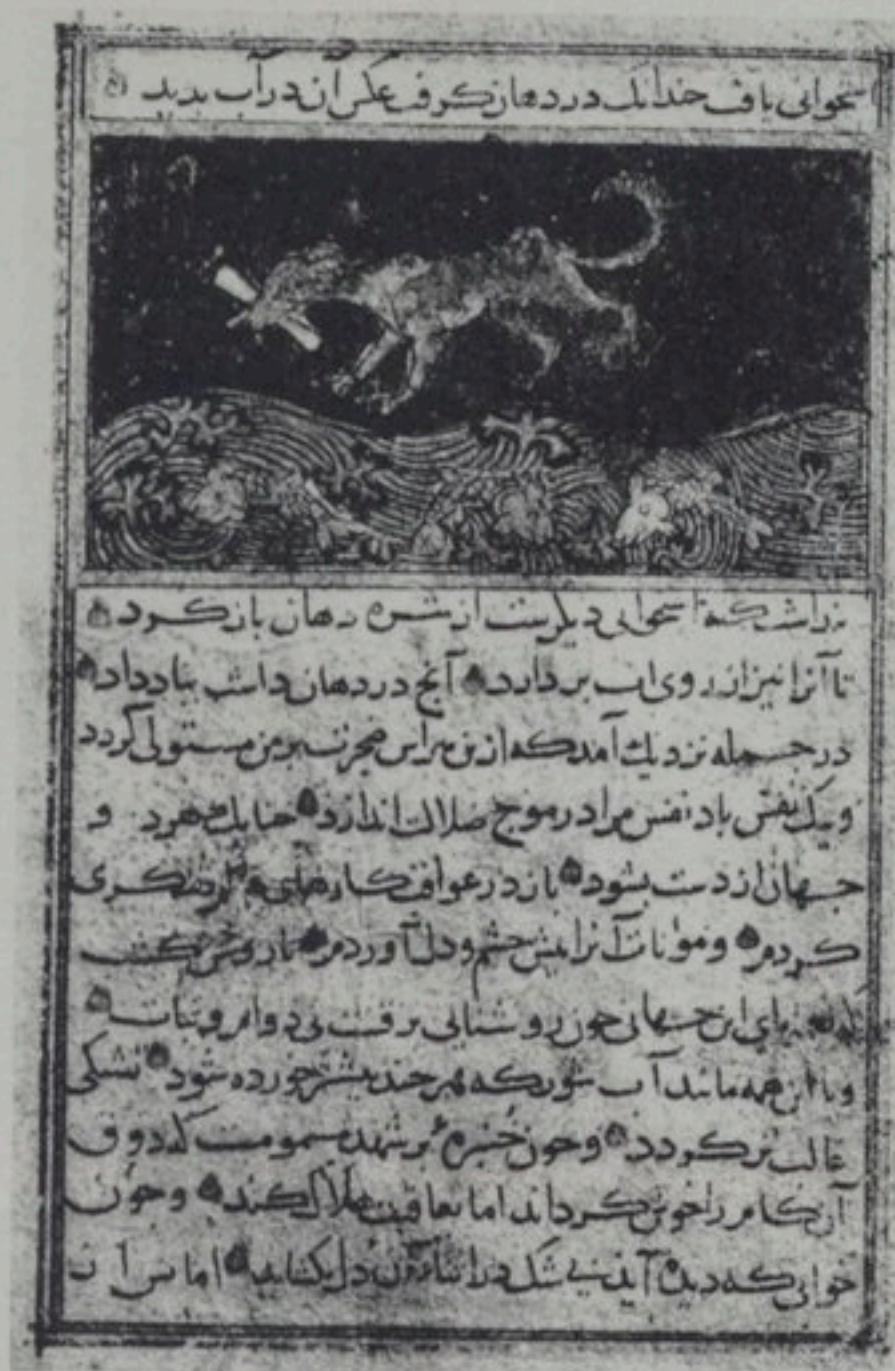 استخوانی یافت چندانک در دهان گرفت عکس آن در آب بدید
که استخوانی دیگرست از شره دهان باز کرد
تا آنرا نیز از روی آب بردارد آنچ در دهان داشت بباد داد
در جمله نزدیک آمد که این هراس ضجرت بر من مستولی گردد
و بیک نفس باد نفس مرا در موج ضلالت اندازد چنانک هر دو
جهان از دست بشود باز در عواقب کارهای عالم تفکری
کردم و مونات آنرا پیش چشم و دل آوردم تا روشن گشت
که نعمتهای این جهانی چون روشنایی برقست بی دوام و ثبات
و با این همه مانند آب شور که هر چند بیشتر خورده شود تشنگی
غالب تر گردد و چون خمره پر شهد مسمومست که ذوق
آن کام را خوش گرداند اما بعاقبت هلاک کند و چون
خوابی که دیده آید بی شک در اثنای آن دل بگشاید اما پس از